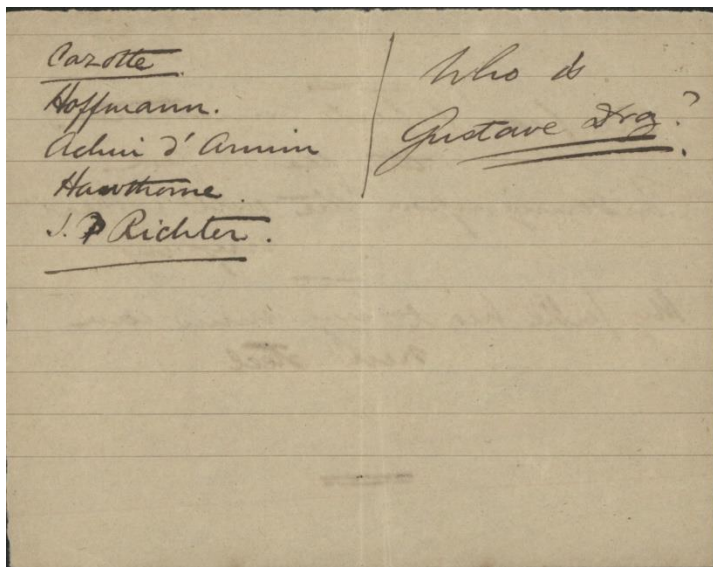 Cazotte
Hoffmann.
Achim d'Arnim
Hawthorne.
J. P Richter.
Who is
Gustave Droz?